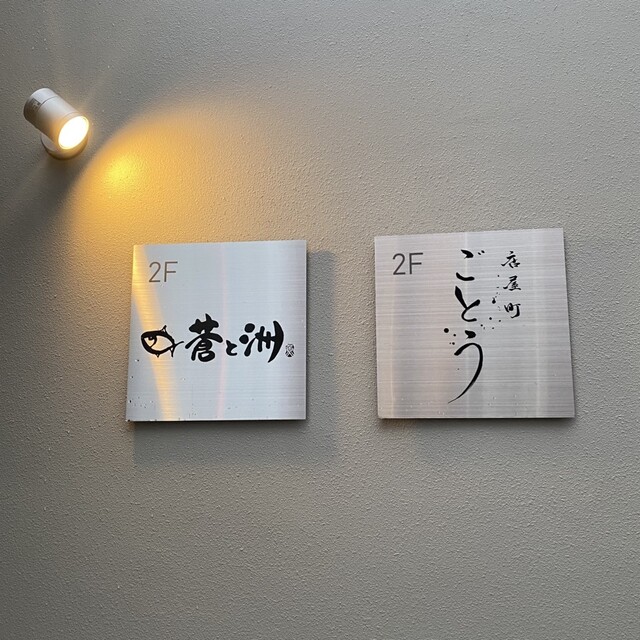 2F
蒼と洲
2F
店屋町
ごとう